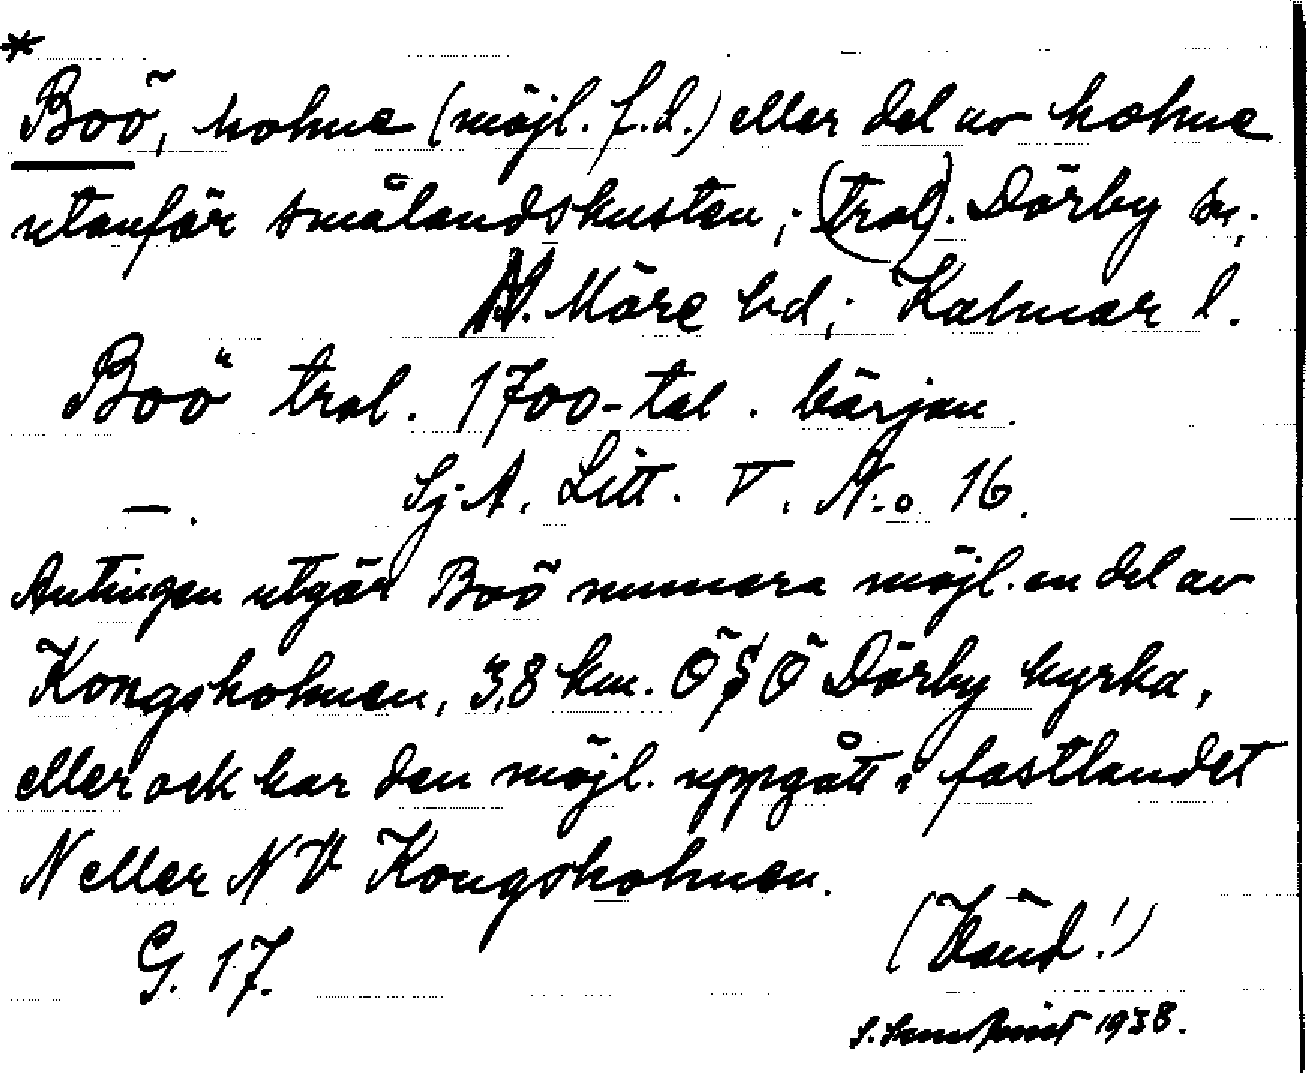 *
Boö, holme (möjl. f.d.) eller del av holme
utanför smålandskusten; (trol). Dörby sn;
N. Möre hd; Kalmar l.
Boö trol. 1700-tal. början.
—. Sj.A. Litt. V. N:o 16.
Antingen utgör Boö numera möjl. en del av
Kongsholmen, 3,8 km. ÖSÖ Dörby kyrka,
eller ock har den möjl. uppgått i fastlandet
N eller NV Kongsholmen.
G. 17. (Vänd!)
1938.